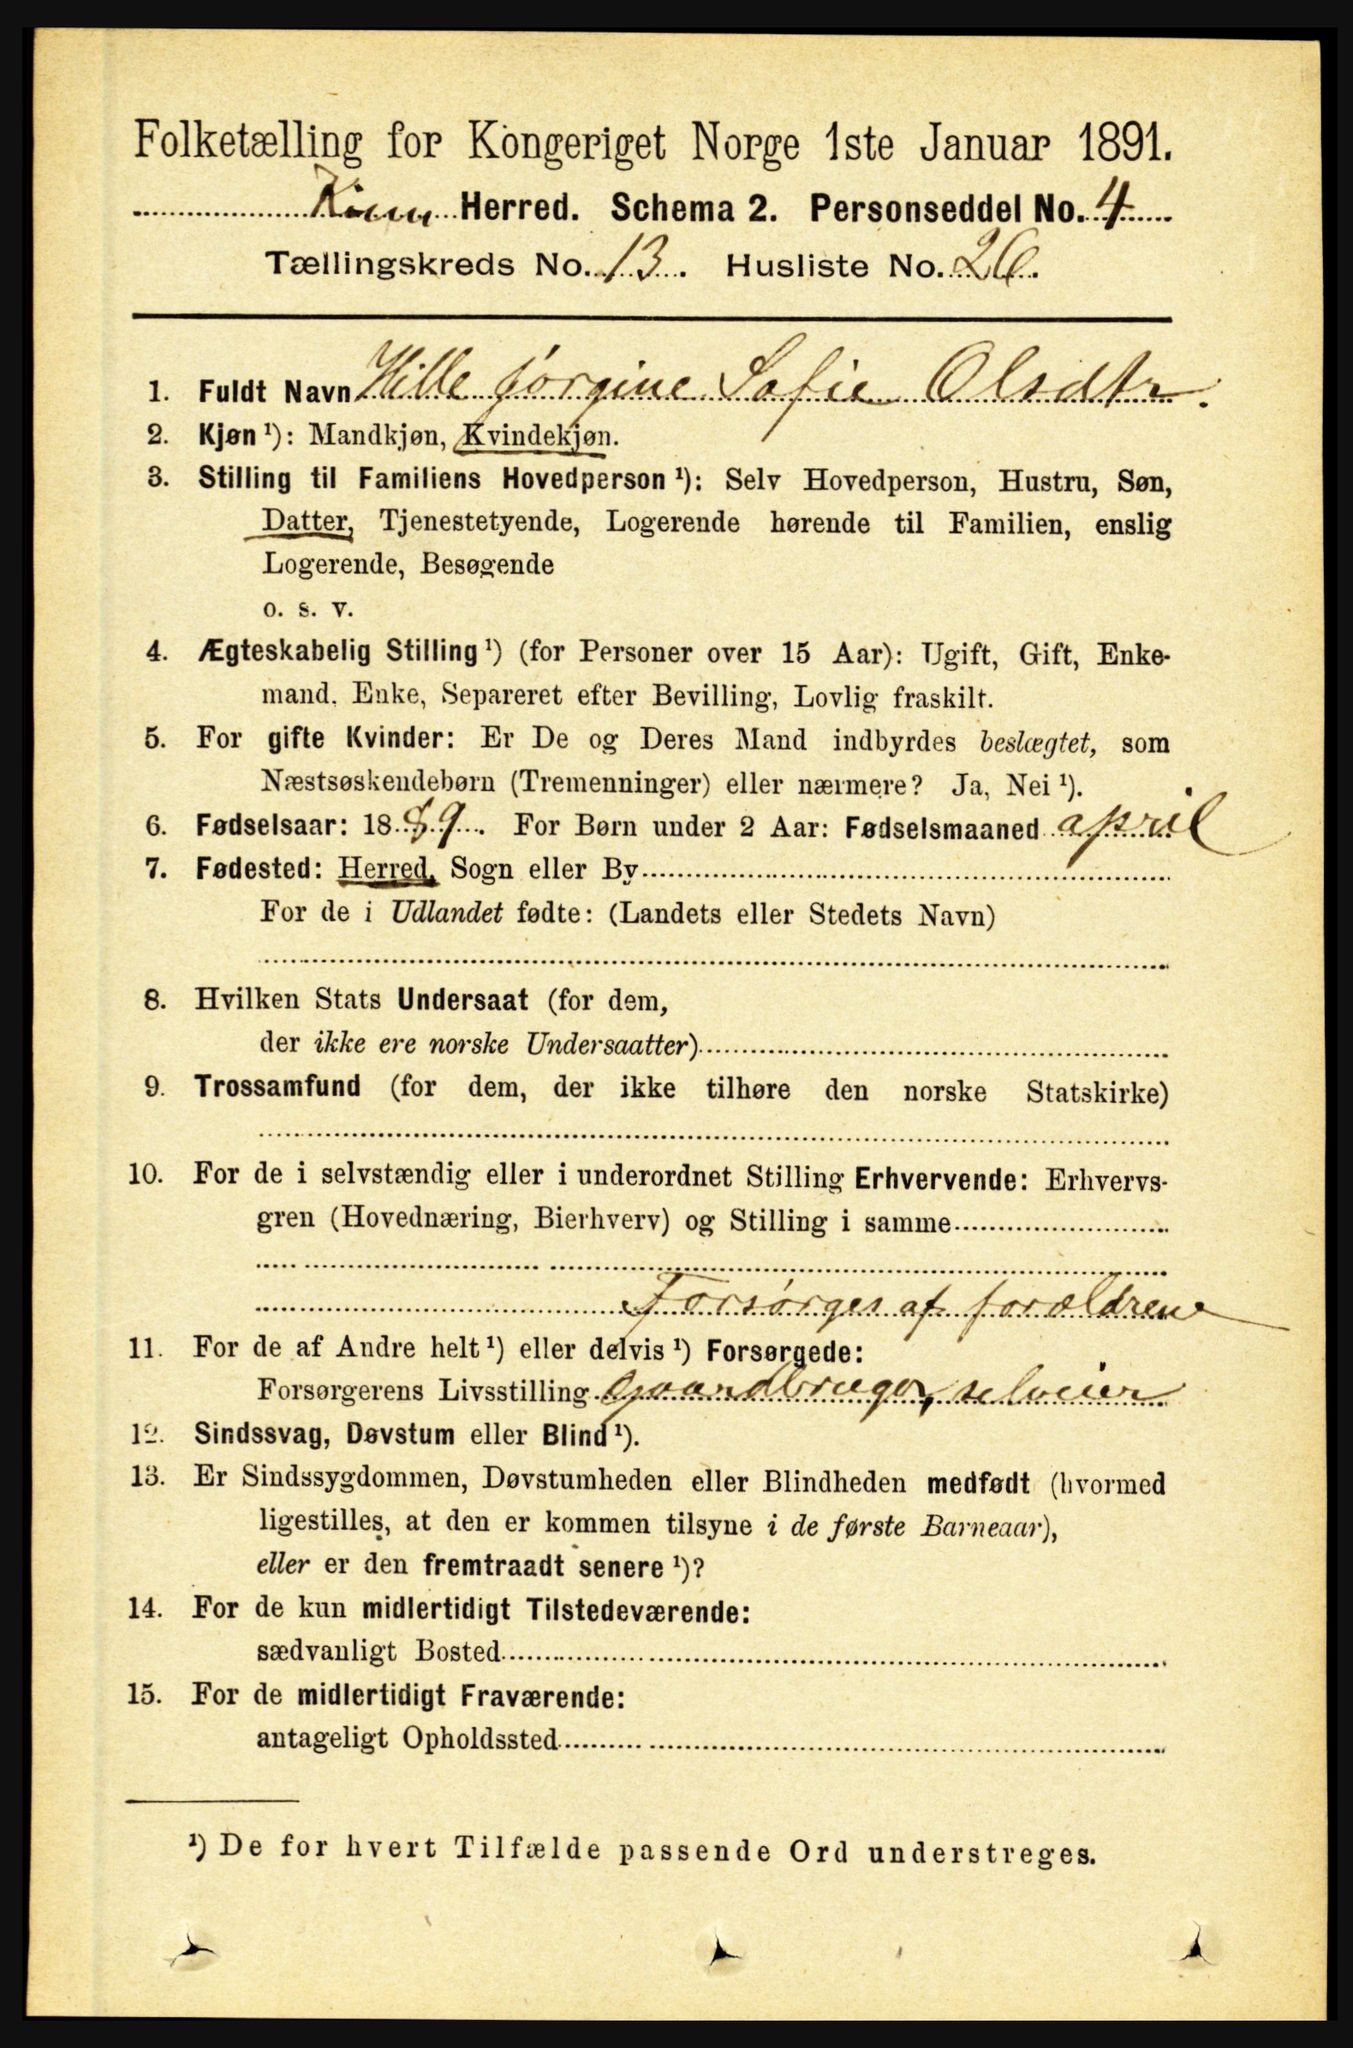 Folketælling for Kongeriget Norge 1ste Januar 1891.
Kinn Herred. Schema 2. Personseddel No. 4
Tællingskreds No. 13. Husliste No. 26.
1. Fuldt Navn Hille Jørgine Sofie Olsdtr.
2. Kjøn ¹): Mandkjøn, Kvindekjøn.
3. Stilling til Familiens Hovedperson ¹): Selv Hovedperson, Hustru, Søn,
Datter, Tjenestetyende, Logerende hørende til Familien, enslig
Logerende, Besøgende
o. s. v.
4. Ægteskabelig Stilling ¹) (for Personer over 15 Aar): Ugift, Gift, Enke-
mand, Enke, Separeret efter Bevilling, Lovlig fraskilt.
5. For gifte Kvinder: Er De og Deres Mand indbyrdes beslægtet, som
Næstsøskendebørn (Tremenninger) eller nærmere? Ja, Nei ¹).
6. Fødselsaar: 1889. For Børn under 2 Aar: Fødselsmaaned april
7. Fødested: Herred, Sogn eller By
For de i Udlandet fødte: (Landets eller Stedets Navn)
8. Hvilken Stats Undersaat (for dem,
der ikke ere norske Undersaatter)
9. Trossamfund (for dem, der ikke tilhøre den norske Statskirke)
10. For de i selvstændig eller i underordnet Stilling Erhvervende: Erhvervs-
gren (Hovednæring, Bierhverv) og Stilling i samme
Forsørges af forældrene
11. For de af Andre helt ¹) eller delvis ¹) Forsørgede:
Forsørgerens Livsstilling Gaardbruger, selveier
12. Sindssvag, Døvstum eller Blind ¹).
13. Er Sindssygdommen, Døvstumheden eller Blindheden medfødt (hvormed
ligestilles, at den er kommen tilsyne i de første Barneaar),
eller er den fremtraadt senere ¹)?
14. For de kun midlertidigt Tilstedeværende:
sædvanligt Bosted
15. For de midlertidigt Fraværende:
antageligt Opholdssted
¹) De for hvert Tilfælde passende Ord understreges.